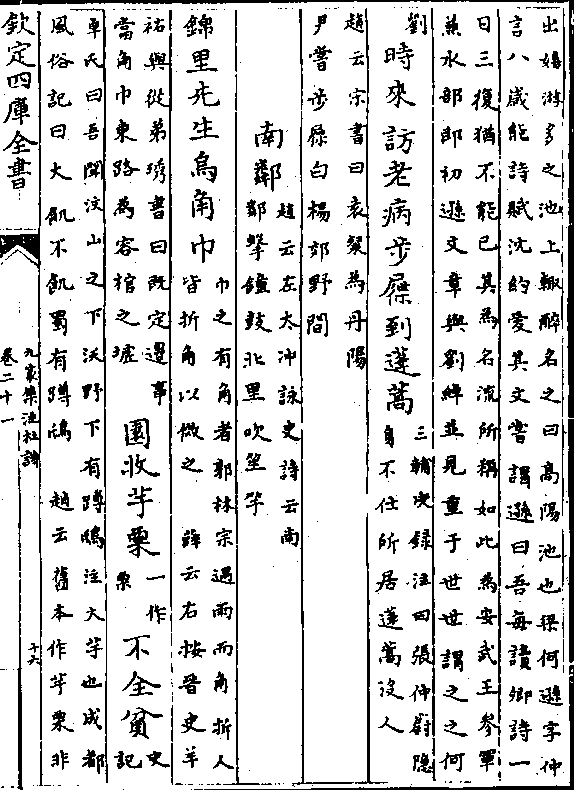 出嬉游多之池上輙醉名之曰高陽池也梁何遜字仲
言八歲能詩賦沈約愛其文嘗謂遜曰吾每讀卿詩一
日三復猶不能已其為名流所稱如此為安武王參軍
兼水部郎初遜文章與劉緯並見重于世世謂之之何
劉
時來訪老病步屧到蓬蒿
三輔決録注曰張仲蔚隠
身不仕所居蓬蒿沒人
趙云宗書曰袁粲為丹陽
尹嘗步屧白楊郊野間
南鄰
趙云左太冲詠史詩云南
鄰擊鐘鼓北里吹笙竽
錦里先生烏角巾
巾之有角者郭林宗遇雨而角折人
皆折角以傚之　薛云右按晉史羊
祜與從弟琇書曰既定邊事
當角巾東路為容棺之墟
園收芋栗
一作
栗
不全貧
史
記
卓氏曰吾聞汶山之下沃野下有蹲鴟注大芋也成都
風俗記曰大飢不飢蜀有蹲鴟　趙云舊本作芋栗非
欽定四庫全書
九家集注杜詩
卷二十一
十六